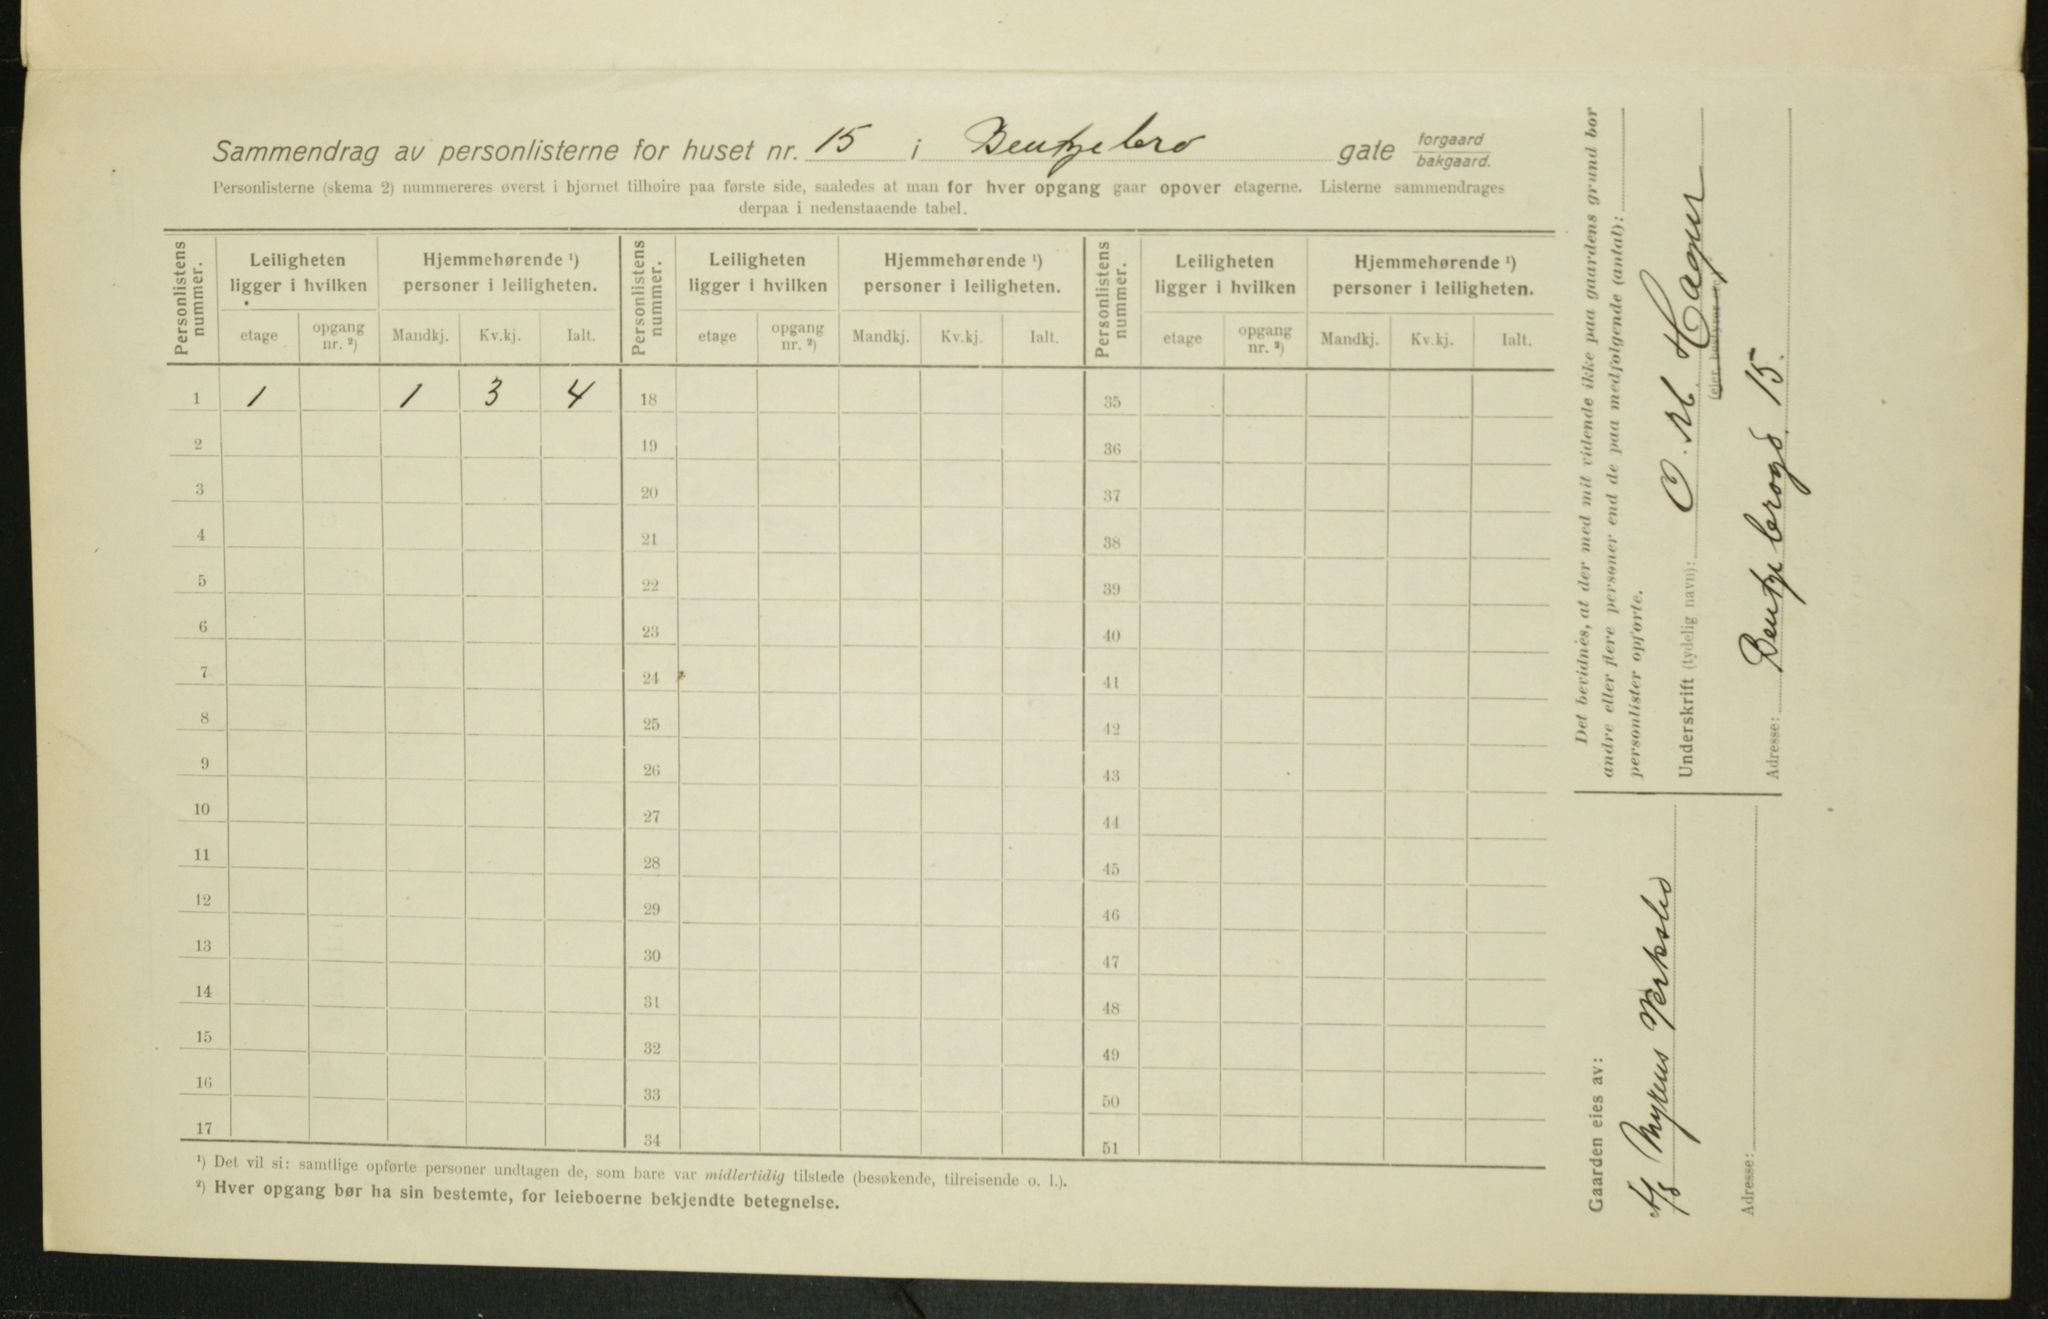 Sammendrag av personlisterne for huset nr. 15 i Bentzebro gate forgaard bakgaard.
Personlisterne (skema 2) nummereres øverst i hjørnet tilhøire paa første side, saaledes at man for hver opgang gaar opover etagerne. Listerne sammendrages
derpaa i nedenstaaende tabel.
Personlistens nummer. Leiligheten ligger i hvilken Hjemmehørende ¹) personer i leiligheten. Personlistens nummer. Leiligheten ligger i hvilken Hjemmehørende ¹) personer i leiligheten. Personlistens nummer. Leiligheten ligger i hvilken Hjemmehørende ¹) personer i leiligheten.
etage opgang nr. ²) Mandkj. Kv.kj. Ialt. etage opgang nr. ²) Mandkj. Kv.kj. Ialt. etage opgang nr. ²) Mandkj. Kv.kj. Ialt.
1 1 1 3 4 18 35
2 19 36
3 20 37
4 21 38
5 22 39
6 23 40
7 24 41
8 25 42
9 26 43
10 27 44
11 28 45
12 29 46
13 30 47
14 31 48
15 32 49
16 33 50
17 34 51
¹) Det vil si: samtlige opførte personer undtagen de, som bare var midlertidig tilstede (besøkende, tilreisende o. l.).
²) Hver opgang bør ha sin bestemte, for leieboerne bekjendte betegnelse.
Det bevidnes, at der med mit vidende ikke paa gaardens grund bor
andre eller flere personer end de paa medfølgende (antal):
personlister opførte.
Underskrift (tydelig navn): O. M. Hagen
(eier, bestyrer
Adresse: Bentzebrogd. 15.
Gaarden eies av:
A/s Myrens Verksted
Adresse: